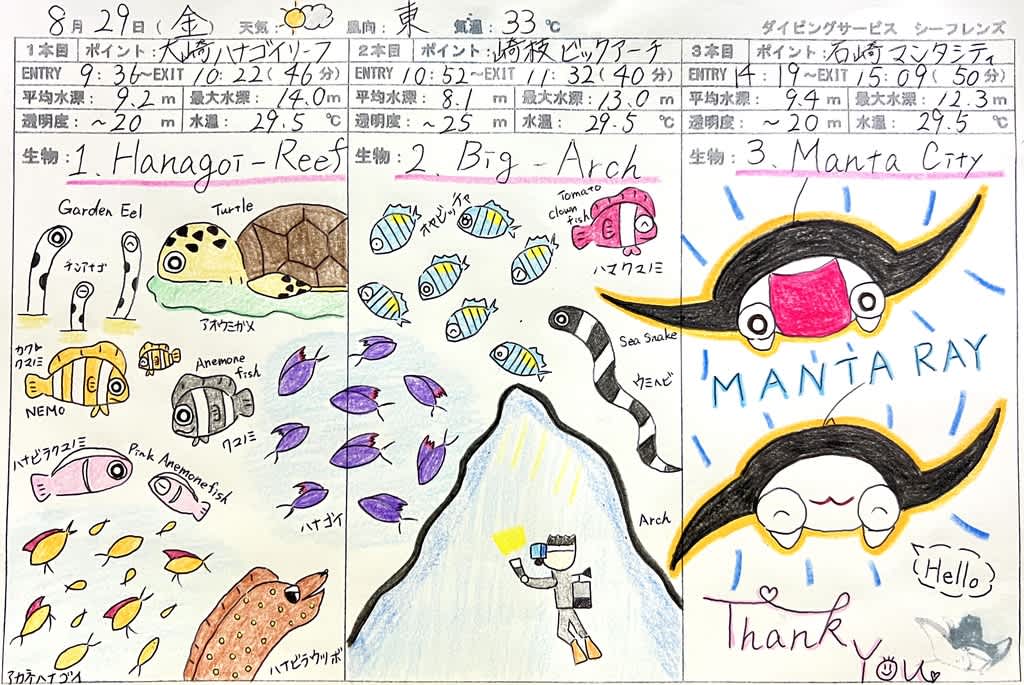 8月29日(金) 天気: 風向: 東 気温: 33℃ ダイビングサービス シーフレンズ
1本目 ポイント: 大崎ハナゴイリーフ
ENTRY 9:36~EXIT 10:22(46分)
平均水深: 9.2m 最大水深: 14.0m
透明度: ~20m 水温: 29.5℃
生物: 1. Hanagoi-Reef
Garden Eel
チンアナゴ
Turtle
アオウミガメ
カクレ
クマノミ
NEMO
Anemone
fish
クマノミ
ハナビラクマノミ
Pink Anemonefish
ハナゴイ
アカネハナゴイ
ハナビラウツボ
2本目 ポイント: 崎枝ビックアーチ
ENTRY 10:52~EXIT 11:32(40分)
平均水深: 8.1m 最大水深: 13.0m
透明度: ~25m 水温: 29.5℃
生物: 2. Big-Arch
オヤビッチャ
Tomato
clown
fish
ハマクマノミ
Sea Snake
ウミヘビ
Arch
3本目 ポイント: 石崎マンタシティ
ENTRY 14:19~EXIT 15:09(50分)
平均水深: 9.4m 最大水深: 12.3m
透明度: ~20m 水温: 29.5℃
生物: 3. Manta City
MANTA RAY
Hello
Thank
You